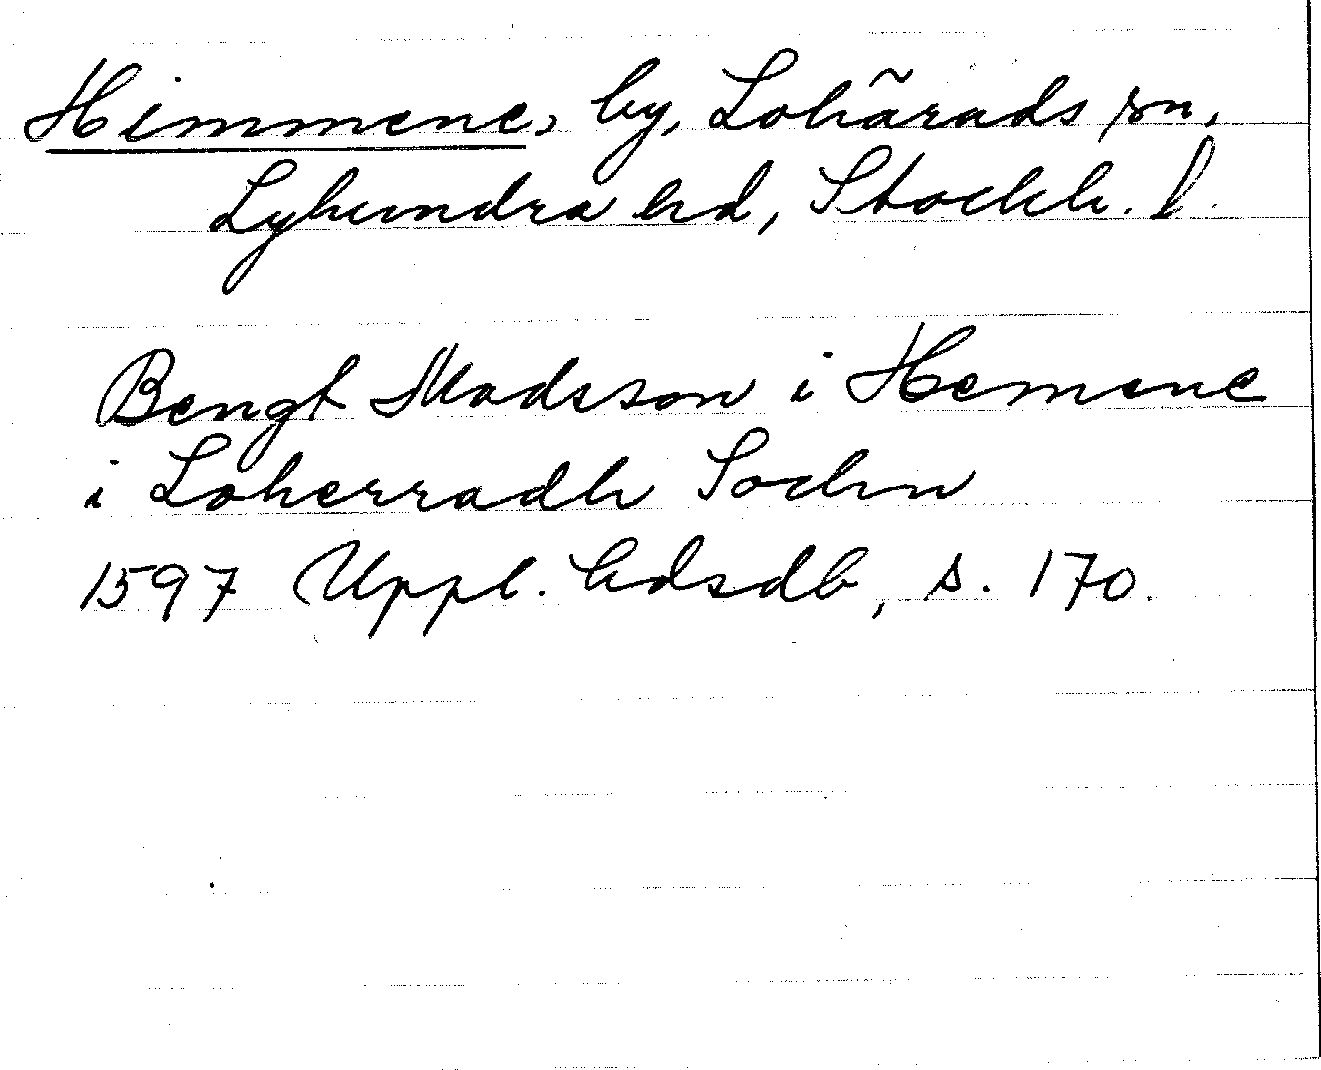 Himmene, by, Lohärads sn,
Lyhundra hd, Stockh. l.
Bengt Madsson i Hemene
i Loherradh Sochn
1597 Uppl. hdsdb, s. 170.